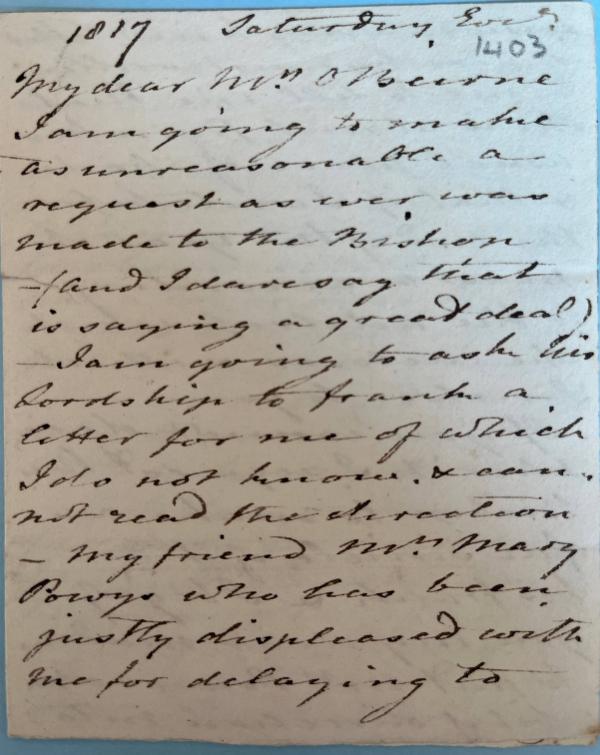 1817 Saturday Eve.
1403
My dear Mrs. O'Beirne
I am going to make
as unreasonable a
request as ever was
made to the Bishop
– (and I daresay that
is saying a great deal)
– I am going to ask his
Lordship to frank a
letter for me of which
I do not know. & can-
not read the direction
– My friend Mrs. Mary
Powys who has been
justly displeased with
me for delaying to